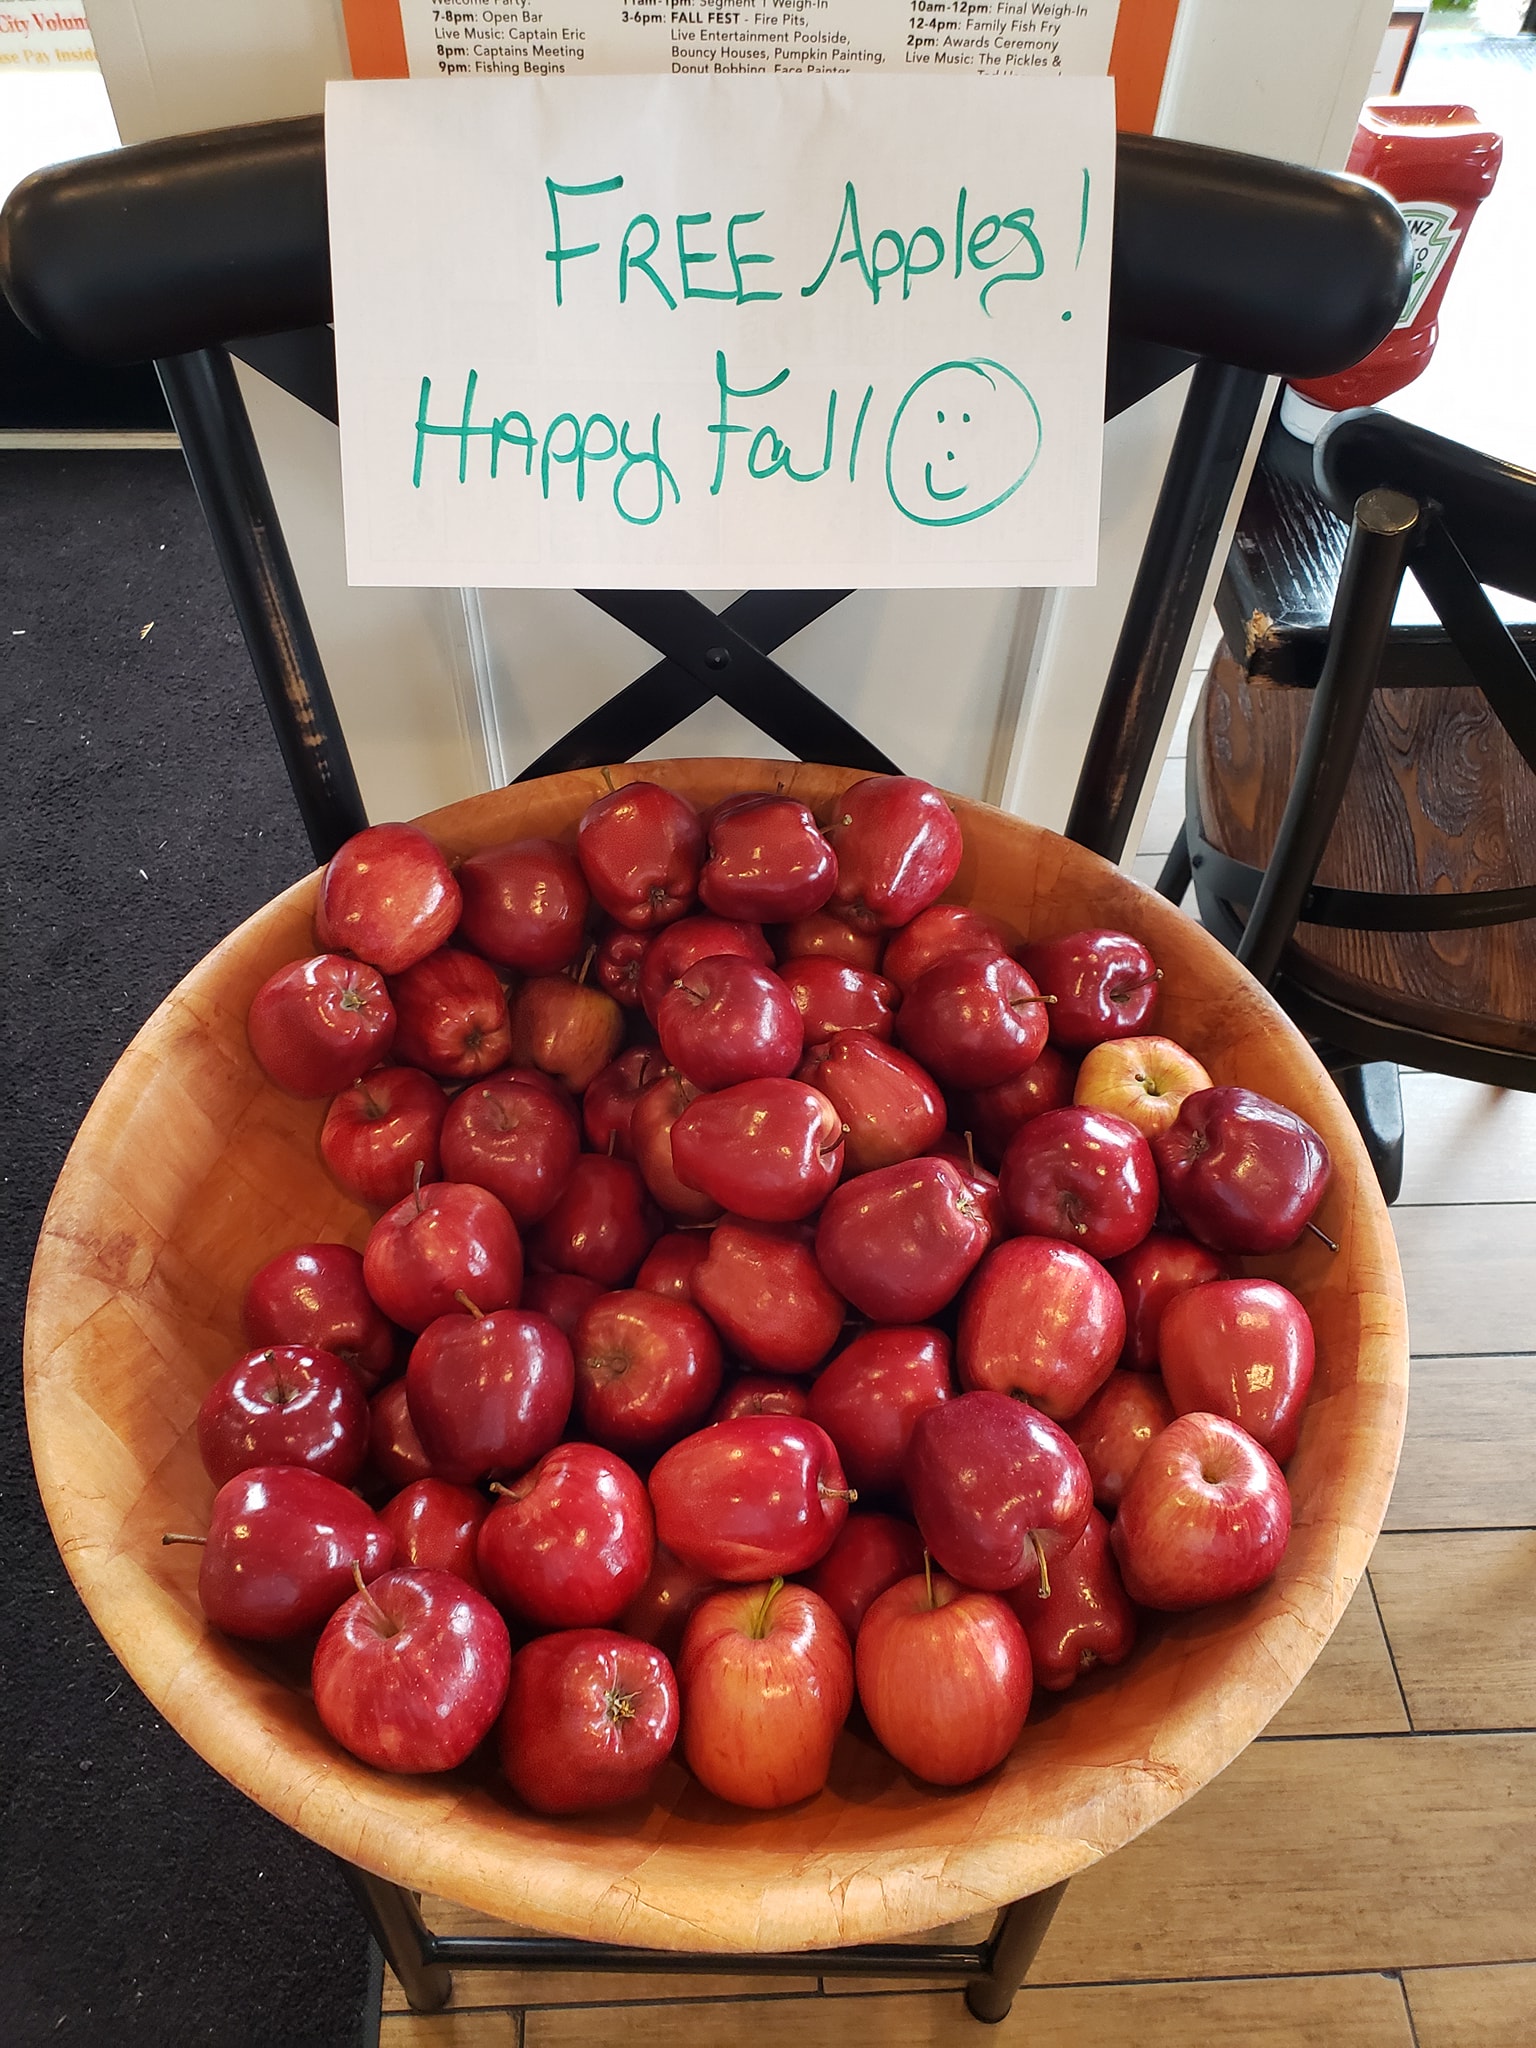 City Volun
se Pay Inside
Welcome Party:
7-8pm: Open Bar
Live Music: Captain Eric
8pm: Captains Meeting
9pm: Fishing Begins
11am-1pm: Segment 1 Weigh-In
3-6pm: FALL FEST - Fire Pits,
Live Entertainment Poolside,
Bouncy Houses, Pumpkin Painting,
Donut Bobbing, Face Painter
10am-12pm: Final Weigh-In
12-4pm: Family Fish Fry
2pm: Awards Ceremony
Live Music: The Pickles &
FREE Apples!
Happy Fall
INZ
TO